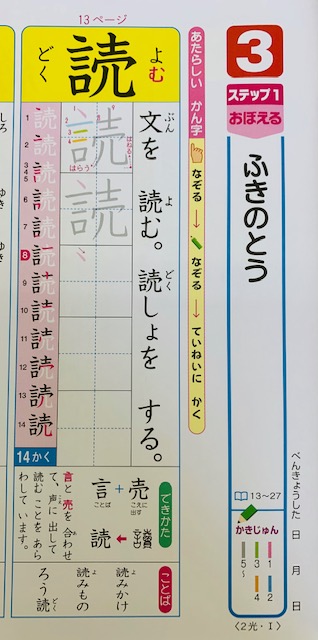 3
ステップ1
おぼえる
ふきのとう
13〜27
かきじゅん
1
2
3
4
5〜
べんきょうした 日 月 日
〈2光・Ⅰ〉
あたらしい かん字
なぞる → なぞる → ていねいに かく
13ページ
読
よむ
どく
文を 読む。 読しょを する。
ぶん
よ
どく
読
読
はねる
はらう
1
2
3
4
5
6
7
8
9
10
11
12
13
14
14かく
できかた
売 こえに出す
+
言 ことば
読
言と売を 合わせ
て、声に 出して
読むことを あら
わしています。
ことば
読みかけ
読みもの
ろう読